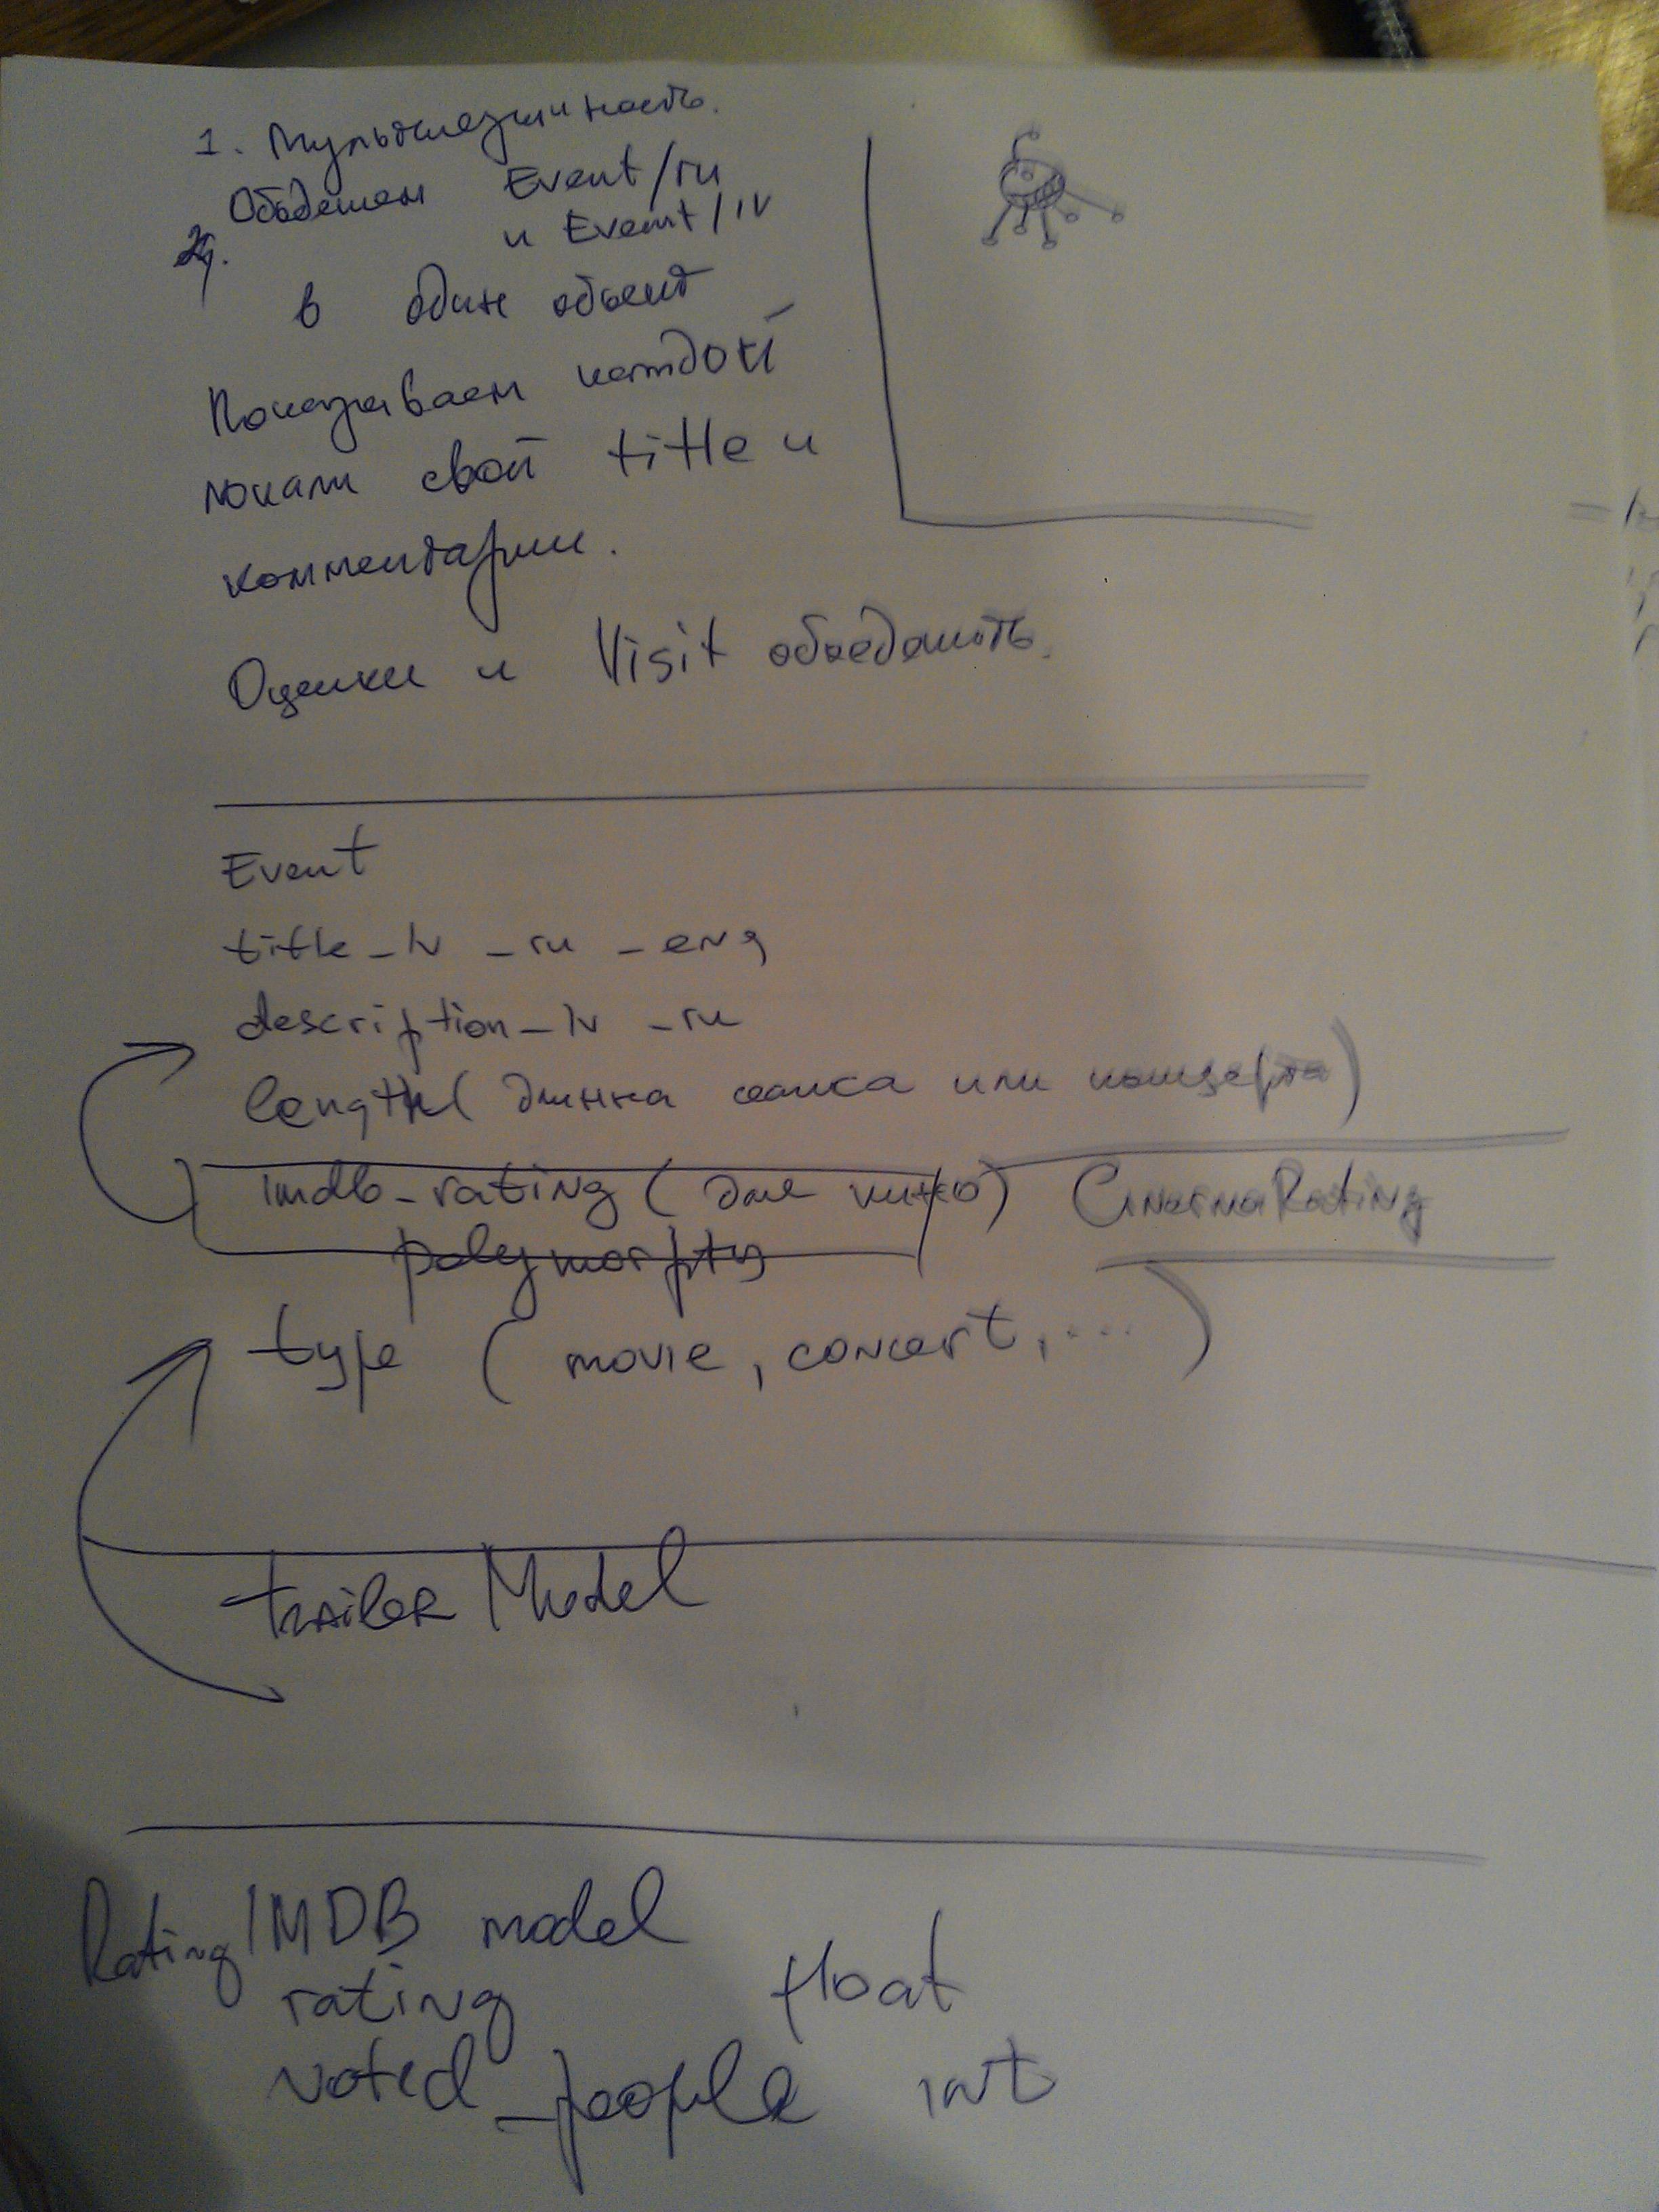 1. Мультиязычность.
Объеденем Event/ru
2. и Event/lv
в один объект
Показываем каждой
локали свой title и
комментарии.
Оценки и Visit объеденить.
Event
title_lv _ru _eng
description_lv _ru
length (длинна сеанса или концерта)
imdb_rating (для кино) CinemaRating
type (movie, concert, ...)
trailer Model
Rating IMDB model
rating float
voted_people int